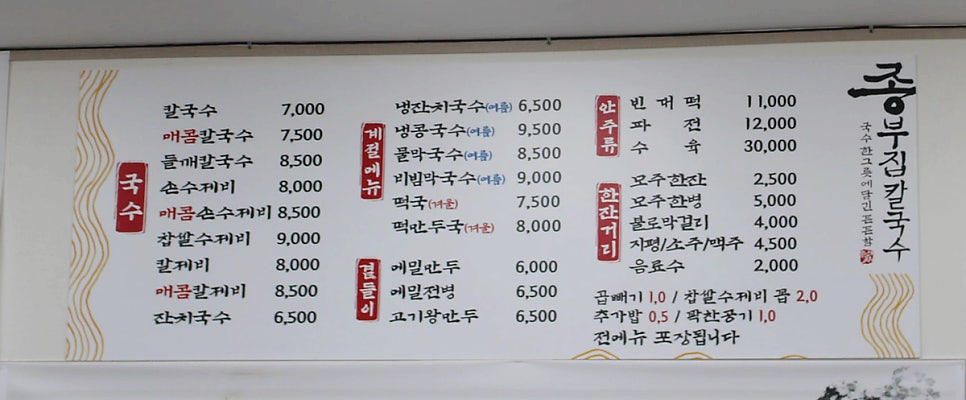 국수
칼국수 7,000
매콤칼국수 7,500
들깨칼국수 8,500
손수제비 8,000
매콤손수제비 8,500
찹쌀수제비 9,000
칼제비 8,000
매콤칼제비 8,500
잔치국수 6,500
계절메뉴
냉잔치국수(여름) 6,500
냉콩국수(여름) 9,500
물막국수(여름) 8,500
비빔막국수(여름) 9,000
떡국(겨울) 7,500
떡만두국(겨울) 8,000
곁들이
메밀만두 6,000
메밀전병 6,500
고기왕만두 6,500
안주류
빈대떡 11,000
파전 12,000
수육 30,000
한잔거리
모주한잔 2,500
모주한병 5,000
불로막걸리 4,000
지평/소주/맥주 4,500
음료수 2,000
곱빼기 1,0 / 찹쌀수제비 곱 2,0
추가밥 0,5 / 팍찬공기 1,0
전메뉴 포장됩니다
종부집칼국수
국수한그릇에담긴든든함